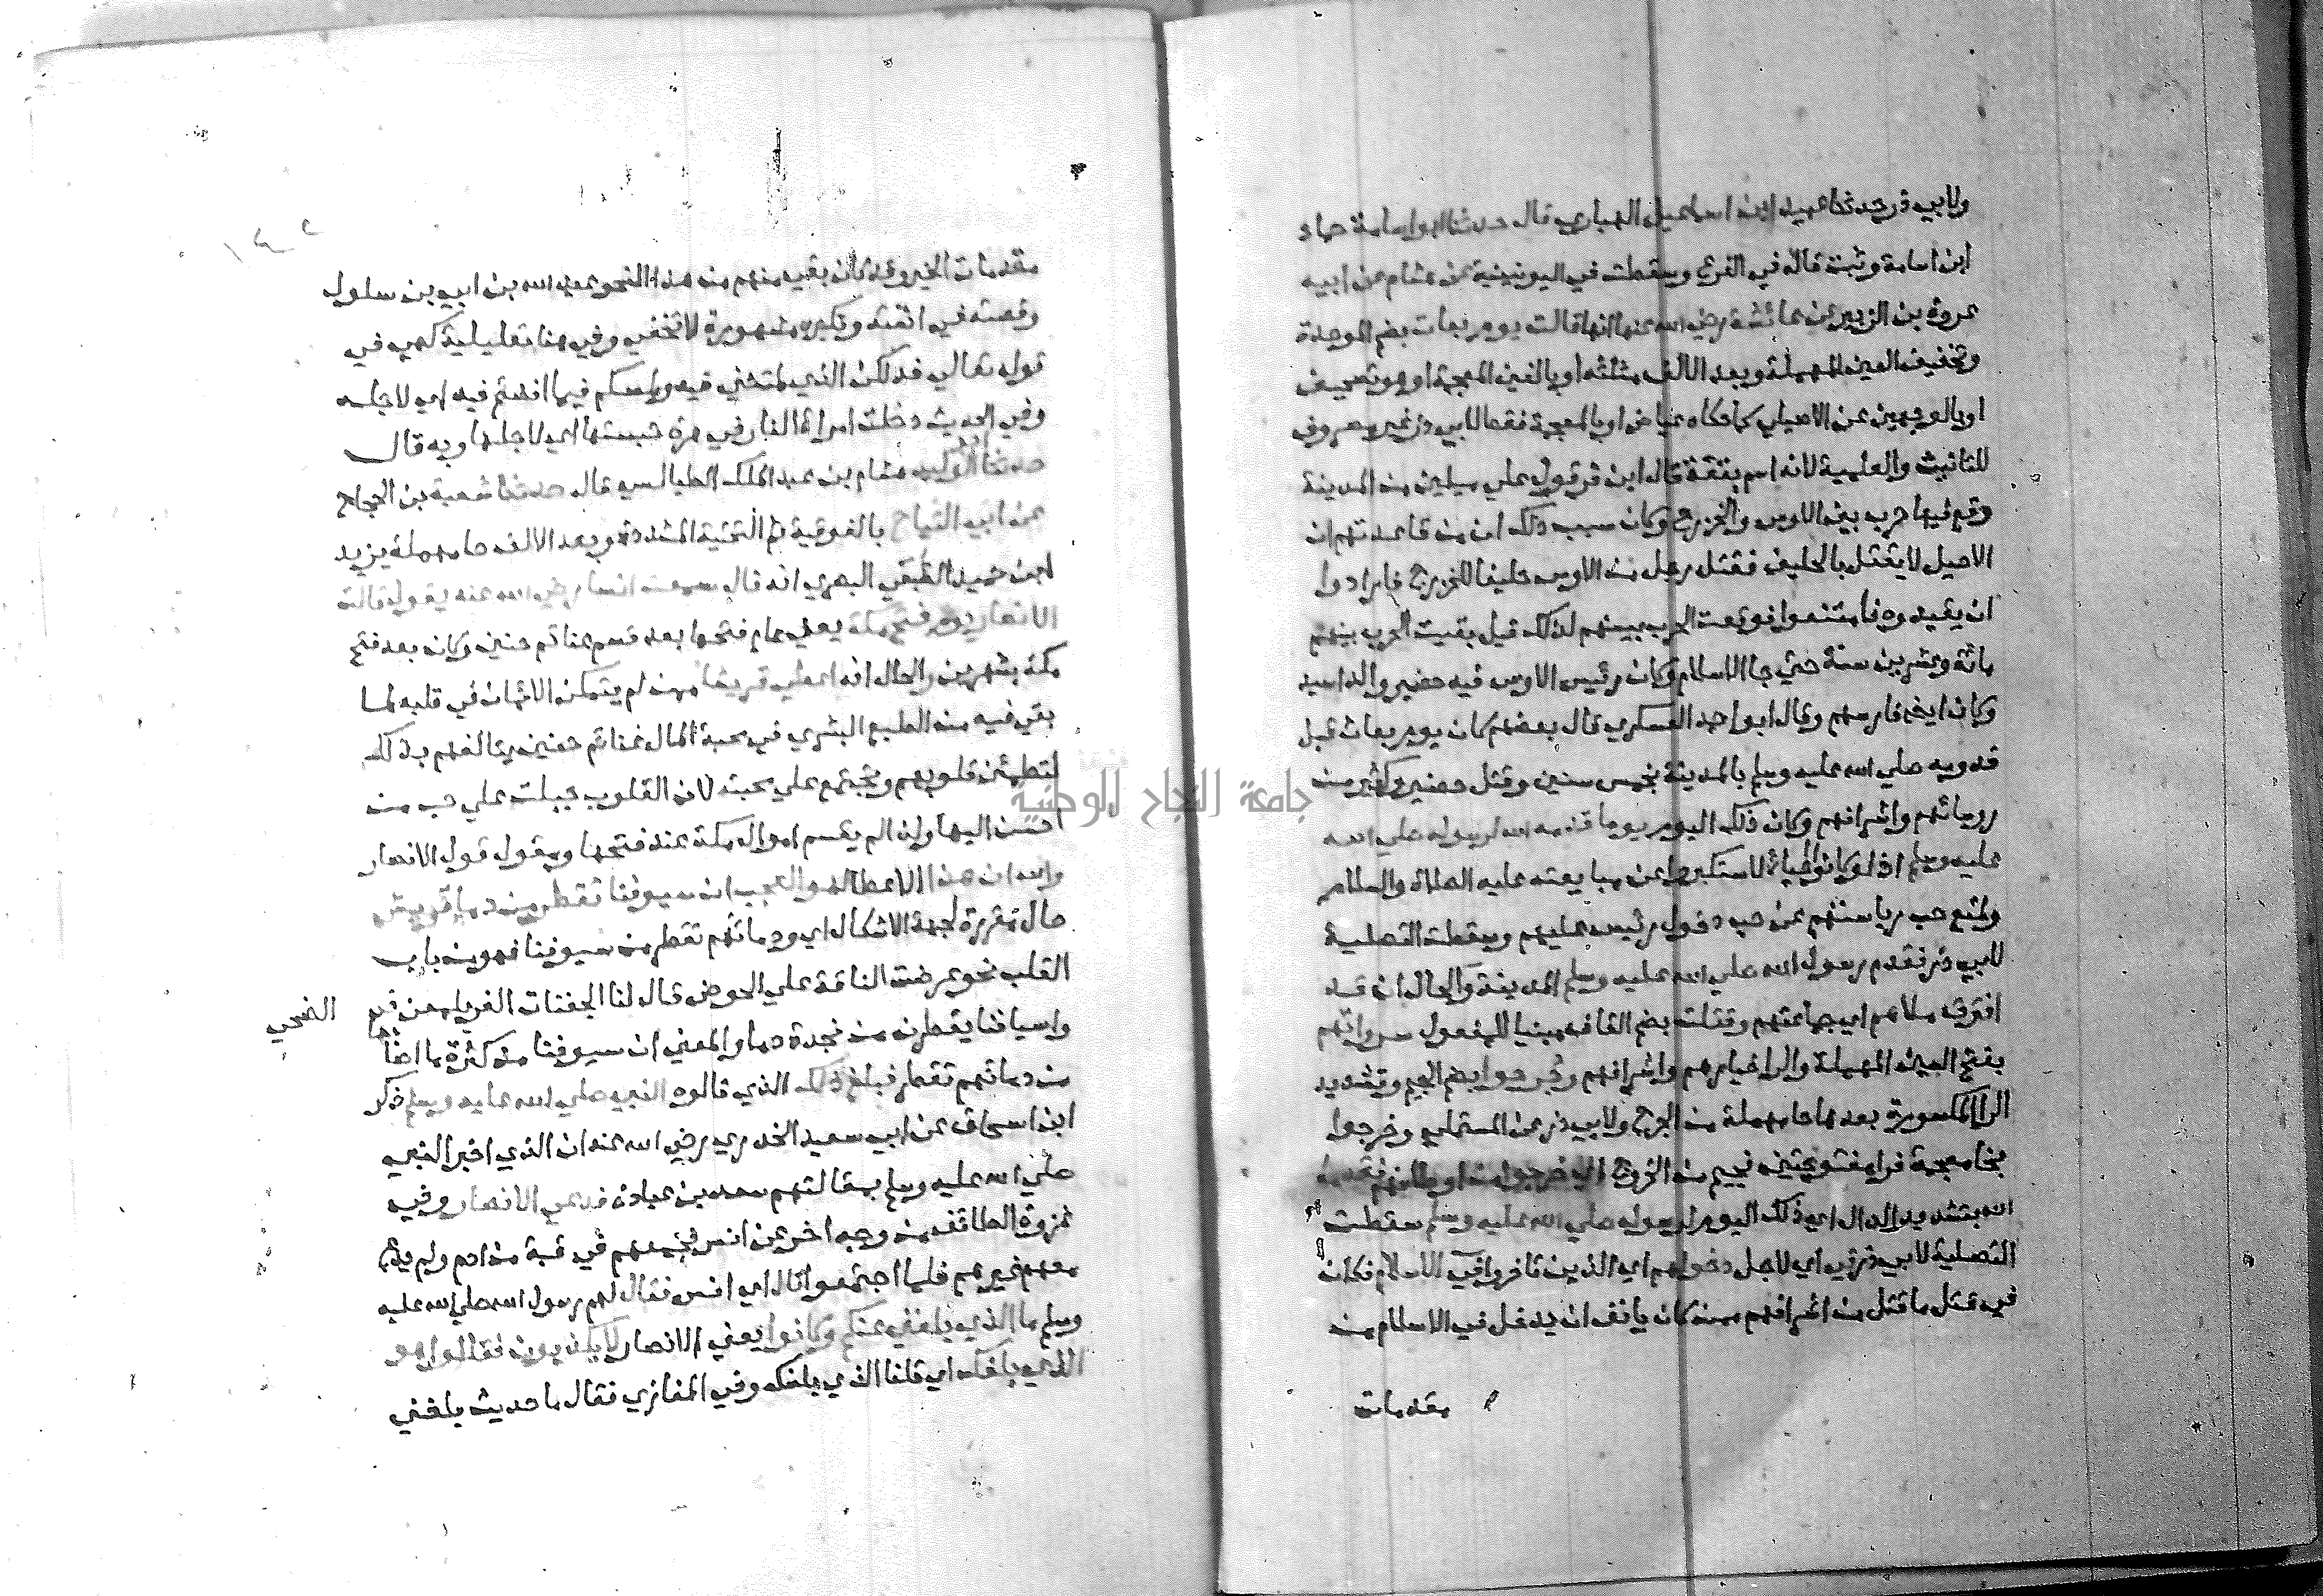 ولابي ذر حدثنا عبيد ابن اسماعيل الهباري قال حدثنا ابو اسامة حماد
ابن اسامة وثبت قال في الفرع وسقطت في اليونينية عن هشام عن ابيه
عروة بن الزبير عن عائشة رضي الله عنها انها قالت يوم بعاث بضم الموحدة
وتخفيف العين المهملة وبعد الالف مثلثه او بالغين المعجمة او هو تصحيف
او بالوجهين عن الاصيلي كما حكاه عياض او بالمعجمة فقط لابي ذر غير مصروف
للتانيث والعلمية لانه اسم بقعة قال ابن قرقول علي ميلين من المدينة
وقع فيها حرب بين الاوس والخزرج وكان سبب ذلك ان من قاعدتهم ان
الاصيل لا يقتل بالحليف فقتل رجل من الاوس حليفا للخزرج فارادوا
ان يقيدوه فامتنعوا فوقعت الحرب بينهم لذلك قيل بقيت الحرب بينهم
مائة وعشرين سنة حتي جا الاسلام وكان رئيس الاوس فيه حضير والد اسيد
وكان ايضا فارسهم وقال ابو احمد العسكري قال بعضهم كان يوم بعاث قبل
قدومه صلي الله عليه وسلم بالمدينة بخمس سنين وقتل حضير وكثير من
روسائهم واشرافهم وكان ذلك اليوم يوما قدمه الله لرسوله صلي الله
عليه وسلم اذ لو كانوا احياء لاستكبروا عن مبايعته عليه الصلاة والسلام
ولمنع حب رياستهم عن حب دخول رئيس عليهم وسقطت التصلية
لابي ذر فقدم رسول الله صلي الله عليه وسلم المدينة والحال ان قد
افترق ملاهم اي جماعتهم وقتلت بضم القاف مبنيا للمفعول سرواتهم
بفتح السين المهملة والرا خيارهم واشرافهم وجرحوا بضم الجيم وتشديد
الرا المكسورة بعدها حا مهملة من الجرح ولابي ذر عن المستملي وخرجوا
بخا معجمة فرا مفتوحتين فجيم من الخروج اي خرجوا من اوطانهم فقدمه
الله بتشديد الدال اي ذلك اليوم لرسوله صلي الله عليه وسلم سقطت
التصلية لابي ذر في اي لاجل دخولهم اي الذين تاخروا في الاسلام فكان
في قتل ما قتل من اشرافهم ممن كان يانف ان يدخل في الاسلام من
مقدمات
مقدمات الخير وقد كان بقي منهم من هذا النحو عبد الله بن ابي بن سلول
وقصته في انفته وتكبره مشهورة لا تخفي وفي هنا تعليلية كهي في
قوله تعالي فذلكن الذي لمتنني فيه ولمسكم فيما افضتم فيه اي لاجله
وفي الحديث دخلت امراة النار في هرة حبستها اي لاجلها وبه قال
حدثنا ابو الوليد هشام بن عبد الملك الطيالسي قال حدثنا شعبة بن الحجاج
عن ابي التياح بالفوقية ثم التحتية المشددة وبعد الالف حا مهملة يزيد
ابن حميد الضبعي البصري انه قال سمعت انسا رضي الله عنه يقول قالت
الانصار يوم فتح مكة يعني عام فتحها بعد قسم غنائم حنين وكان بعد فتح
مكة بشهرين والحال انه اعطي قريشا ممن لم يتمكن الايمان في قلبه لما
بقي فيه من الطبع البشري في محبة المال غنائم حنين يتالفهم بذلك
لتطمئن قلوبهم وتجتمع علي محبته لان القلوب جبلت علي حب من
احسن اليها ولذا لم يقسم اموال مكة عند فتحها ومقول قول الانصار
والله ان هذا الاعطا لهو العجب ان سيوفنا تقطر من دما قريش
حال مقررة لجهة الاشكال اي ودمائهم تقطر من سيوفنا فهو من باب
القلب نحو عرضت الناقة علي الحوض قال لنا الجفنات الغر يلمعن في
الضحي
واسيافنا يقطرن من نجدة دما والمعني ان سيوفنا من كثرة ما اصابها
من دمائهم تقطر فبلغ ذلك الذي قالوه النبي صلي الله عليه وسلم ذكر
ابن اسحاق عن ابي سعيد الخدري رضي الله عنه ان الذي اخبر النبي
صلي الله عليه وسلم بمقالتهم سعد بن عبادة فدعي الانصار وفي
غزوة الطائف من وجه اخر عن انس فجمعهم في قبة من ادم ولم يدع
معهم غيرهم فلما اجتمعوا قال اي انس فقال لهم رسول الله صلي الله عليه
وسلم ما الذي بلغني عنكم وكانوا يعني الانصار لا يكذبون فقالوا هو
الذي بلغك اي قلنا الذي بلغك وفي المغازي فقال ما حديث بلغني
جامعة النجاح الوطنية